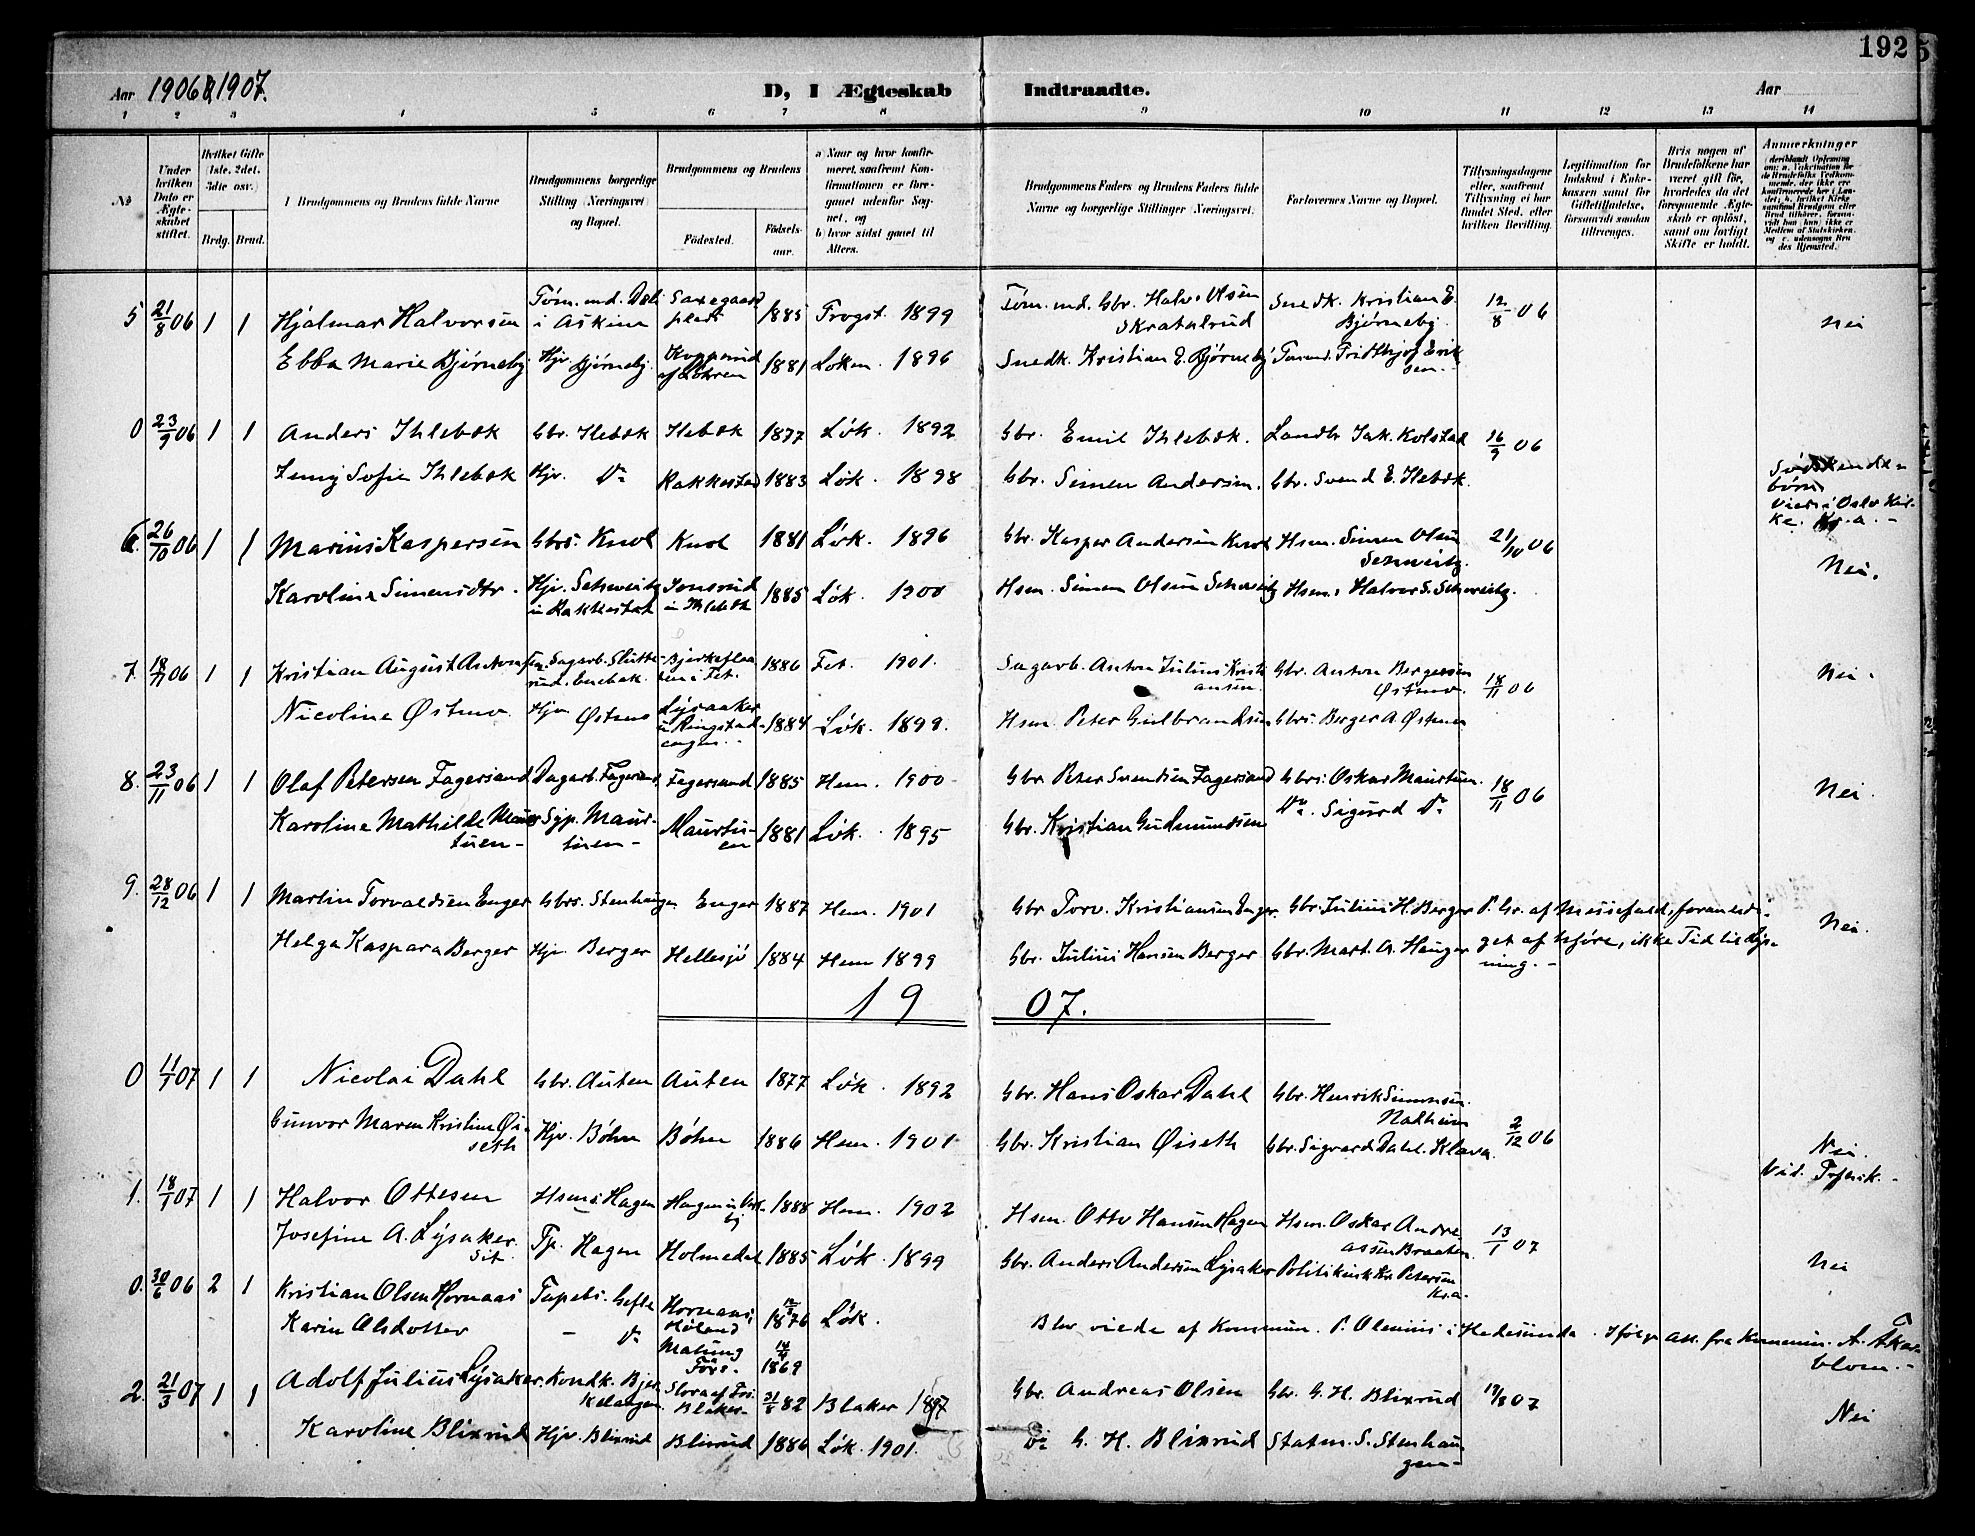 192
5
Aar 1906 & 1907.
D, I Ægteskab Indtraadte.
Aar
1 2 3 4 5 6 7 8 9 10 11 12 13 14
No
Under hvilken Dato er Ægteskabet stiftet.
Hvilket Gifte (1ste, 2det, 3die osv.)
Brdg. Brud.
I Brudgommens og Brudens fulde Navne
Brudgommens borgerlige Stilling (Næringsvei) og Bopæl.
Brudgommens og Brudens
Födested. Födselsaar.
a) Naar og hvor konfirmeret, saafremt Konfirmationen er foregaaet udenfor Sognet, og
b) hvor sidst gaaet til Alters.
Brudgommens Faders og Brudens Faders fulde Navne og borgerlige Stillinger (Næringsvei.
Forlovernes Navne og Bopæl.
Tillysningsdagene eller, saafremt Tillysning ei har fundet Sted, efter hvilken Bevilling.
Legitimation for Indskud i Enkekassen samt for Giftetilladelse, forsaavidt saadan tiltrænges.
Hvis nogen af Brudefolkene har været gift för, hvorledes da det foregaaende Ægteskab er oplöst, samt om lovligt Skifte er holdt.
Anmærkninger
5 21/8 06 1 1 Hjalmar Halvorsen Töm.md. i Askim 1885 Trogst. 1899 Töm.md. Gbr. Halv. Olsen Skratulrud Snedk. Kristian E. Bjørneby 12/8 06 Nei
Ebba Marie Bjørneby Hjv. Bjørneby 1881 Löken 1896 Snedk. Kristian E. Bjørneby Fridthjof Eriksen.
0 23/9 06 1 1 Anders Ihlebæk Gbr. Ilebæk Ilebæk 1877 Løk. 1892 Gbr. Emil Ihlebæk. Landbr Jak. Kolstad 16/9 06
Jenny Sofie Ihlebæk Hjv. Do Rakkestad 1883 Løk. 1898 Gbr. Simen Andersen. Gbr. Svend E. Ilebæk.
Södskendebörn Viet i Oslo Kirke. Kr.a.
6. 26/10 06 1 1 Marius Kaspersen Gbrs. Knol Knol 1881 Løk. 1896 Gbr. Kasper Andersen Knol Hsm. Simen Olsen Schweitz. 21/10 06 Nei.
Karoline Simensdtr. Hjv. Schweitz in Rakkestad Jonsrud in Ihlebæk 1885 Løk. 1900 Hsm. Simen Olsen Schweitz Hsms. Halvor S. Schweitz.
7. 18/11 06 1 1 Kristian August Antonsen. Sagarb. Slutterud. Enebak. Bjerkefloten i Fet. 1886 Fet. 1901. Sagarb. Anton Julius Kristiansen. Gbr. Anton Bergersen Østmo. 18/11 06 Nei.
Nicoline Østmo Hjv. Østmo Lysaaker u. Ringstadengen. 1884 Løk. 1899. Hsm. Peter Gulbrandsen Gbrs. Berger A. Østmo
8. 23/11 06 1 1 Olaf Petersen Fagersand Dagarb. Fagersand Fagersand 1885 Hem. 1900 Gbr Peter Svendsen Fagersand Gbrs. Oskar Maurtuen. 18/11 06 Nei.
Karoline Mathilde Maurtuen Syp. Maurtuen Maurtuen 1881 Løk. 1895 Gbr. Kristian Gudmundsen Do. Sigurd Do
9. 28/12 06 1 1 Martin Torvaldsen Enger Gbrs. Stenhaugen Enger 1887 Hem. 1901 Gbr Torv. Kristiansen Enger Gbr. Julius H. Berger P. Gr. af Messefald, foranlediget af Uföre, ikke Tid til Lysning. Nei.
Helga Kaspara Berger Hjv. Berger Hellesjø 1884 Hem 1899 Gbr. Julius Hansen Berger Gbr. Mart. A. Hauger
1907.
0 11/1 07 1 1 Nicolai Dahl Gbr. Auten Auten 1877 Løk. 1892 Gbr. Hans Oskar Dahl Gbr. Henrik Simonsen 2/12 06
Gunvor Maren Kristine Øiseth Hjv. Böhn Böhn 1886 Hem. 1901 Gbr. Kristian Øiseth Gbr. Sigvard Dahl. Nei.
1. 18/1 07 1 1 Halvor Ottesen Hsms. Hagen 1888 Hem. 1902 Hsm. Otto Hansen Hagen Hsm. Oskar Andreassen Braaten. 13/1 07
Josefine A. Lysaker Tp. Hagen Holmedal 1885 Løk. 1899 Gbr. Anders Andersen Lysaker Kr. Petersen Kr.a. Nei
0. 30/6 06 2 1 Kristian Olsen Hornaas Tapets. Gefle Hornaas, Høland 1876 Løk.
Karin Olsdotter — Do Malung Fors. 1869 Blev viede af Kommin. P. Olenius i Hedesunda. Ifölge att. fra Kommin. A. Åkerblom.
2. 21/3 07 1 1 Adolf Julius Lysaker. Kondk. Bjørkelangen. Blaker 31/8 82 Blaker 1897 Gbr. Andreas Olsen Gbr. G. H. Blixrud 17/3 07 Nei
Karoline Blixrud Hjv. Blixrud Blixrud 1886 Løk. 1901. Do G. H. Blixrud Statm. S. Stenhaugen